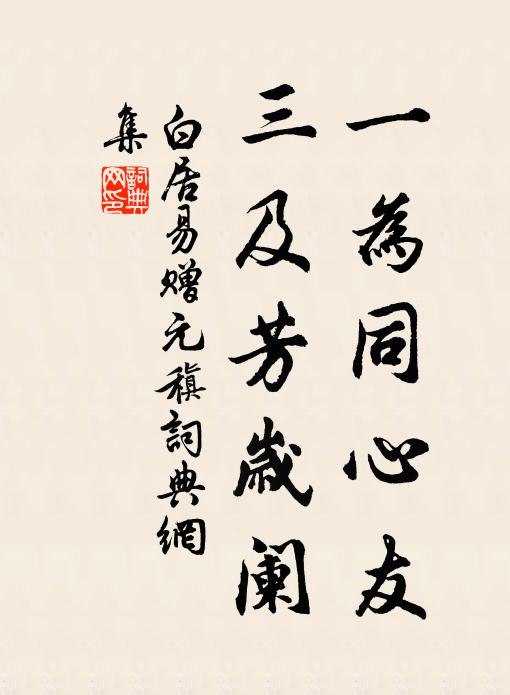 一為同心友
三及芳歲阑
白居易赠元稹詞典網
集
詞典
网印